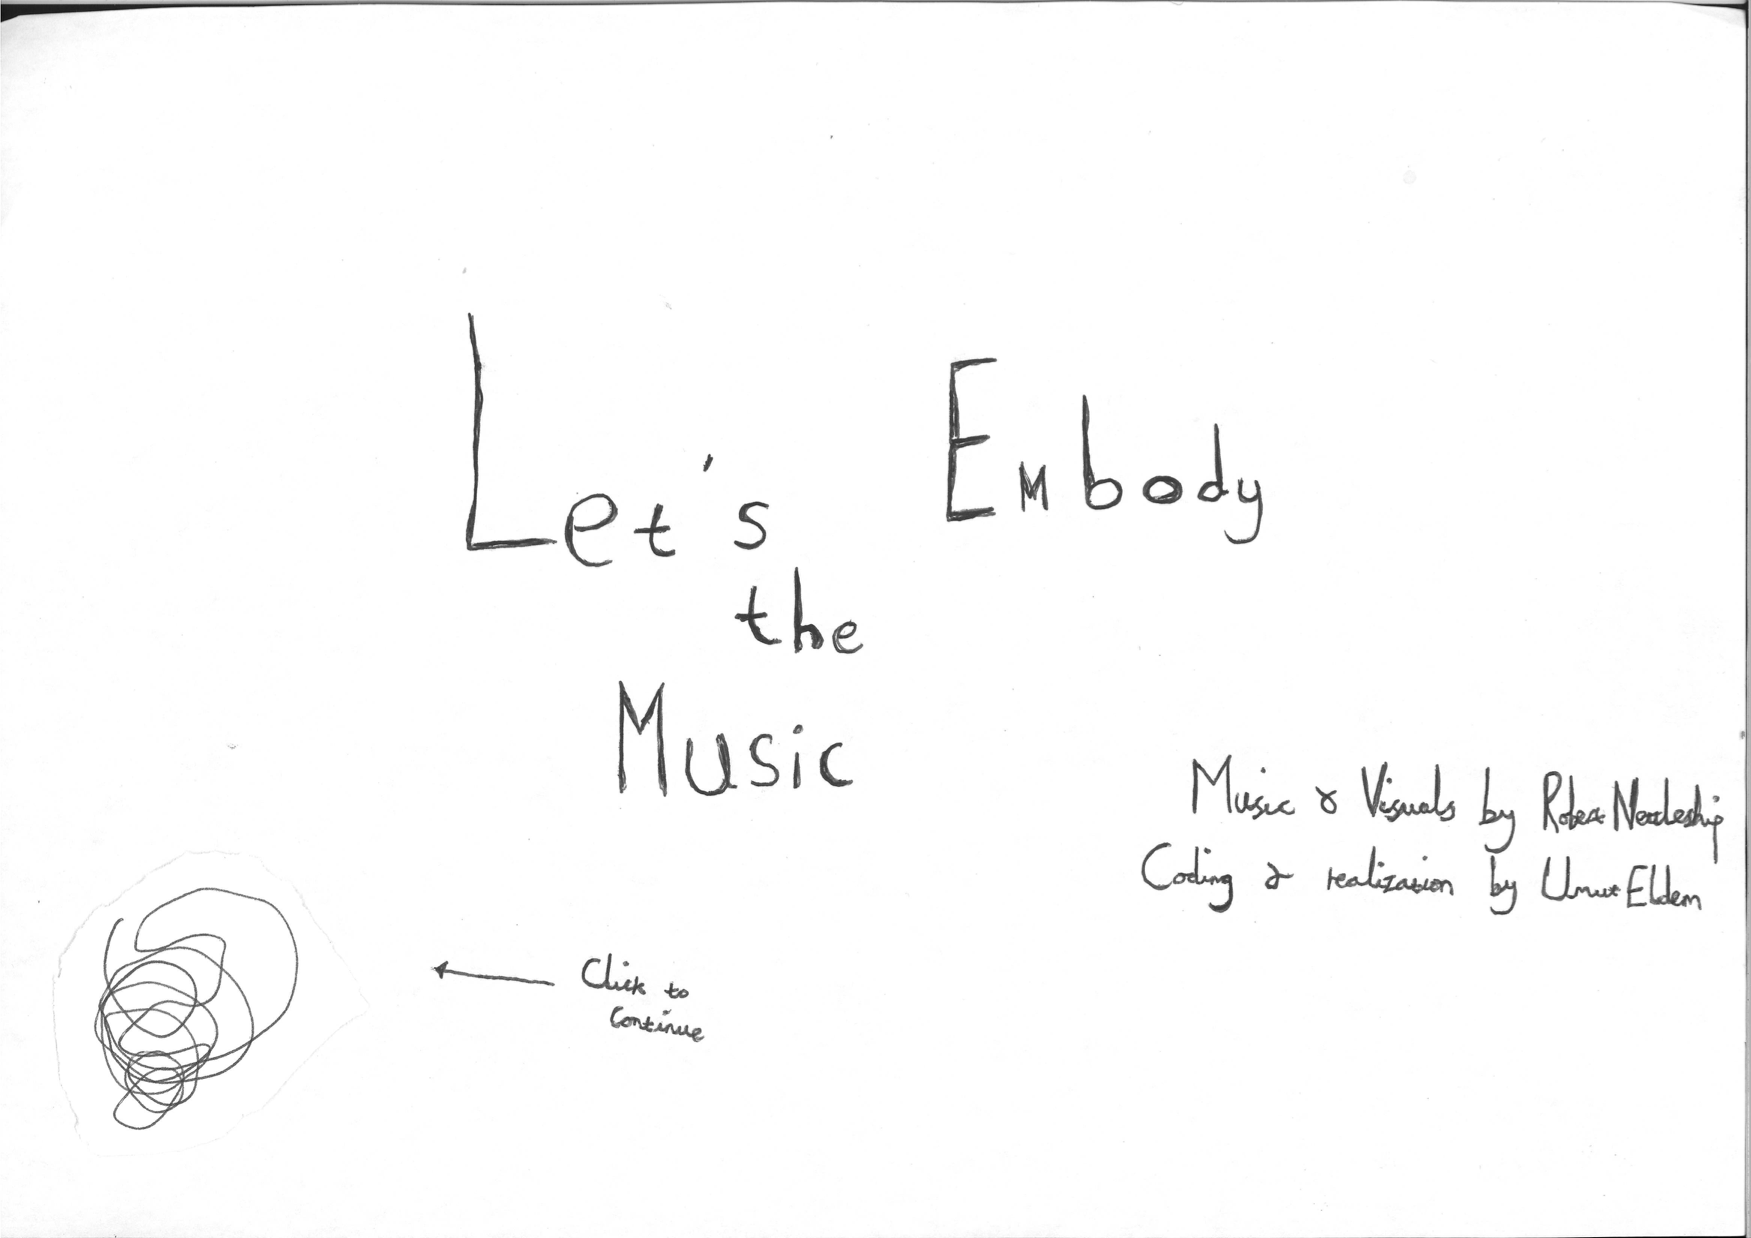 Let's Embody
the
Music
Music & Visuals by Robert Nettleship
Coding & realization by Umut Eldem
Click to
continue